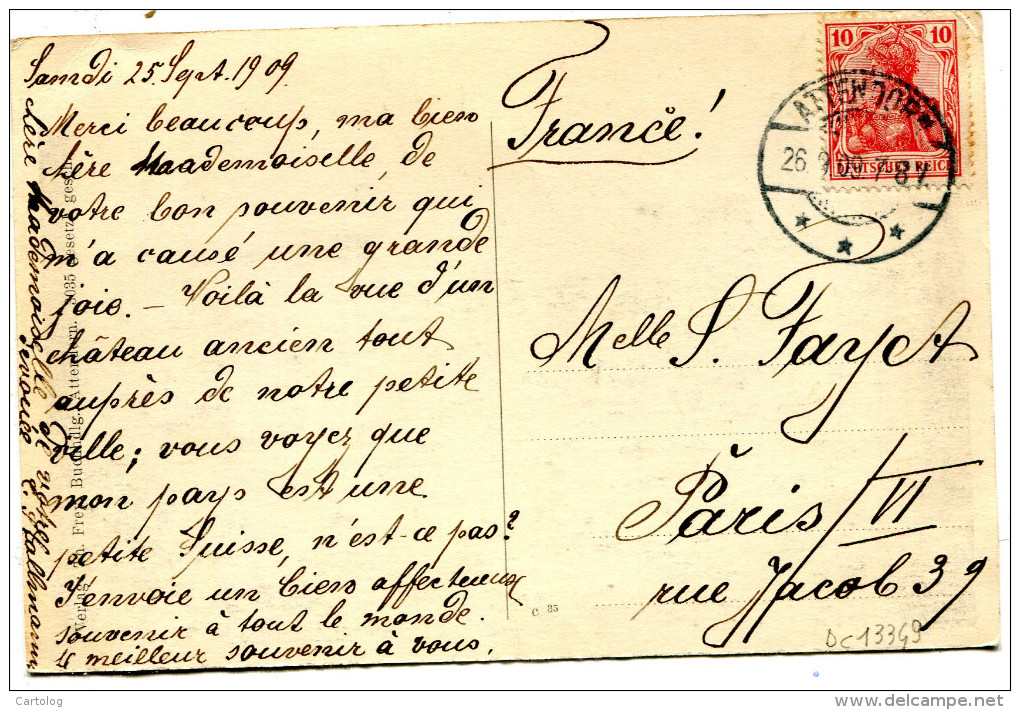 Samdi 25. Sept. 1909.
Merci beaucoup, ma bien
chère Mademoiselle de
votre bon souvenir qui
m'a causé une grande
joie. – Voilà la vue d'un
château ancien tout
auprès de notre petite
ville; vous voyez que
mon pays est une
petite Suisse, n'est-ce pas?
J'envoie un bien affectueux
souvenir à tout le monde.
Le meilleur souvenir à vous,
chère Mademoiselle de votre
dévouée
France!
10 10
DEUTSCHES REICH
ATTENDORN
26.9.09. 7-8 V
Melle S. Fayet
Paris/VI
rue Jacob 39
C. 35
DC13349
Cartolog
www.delcampe.net